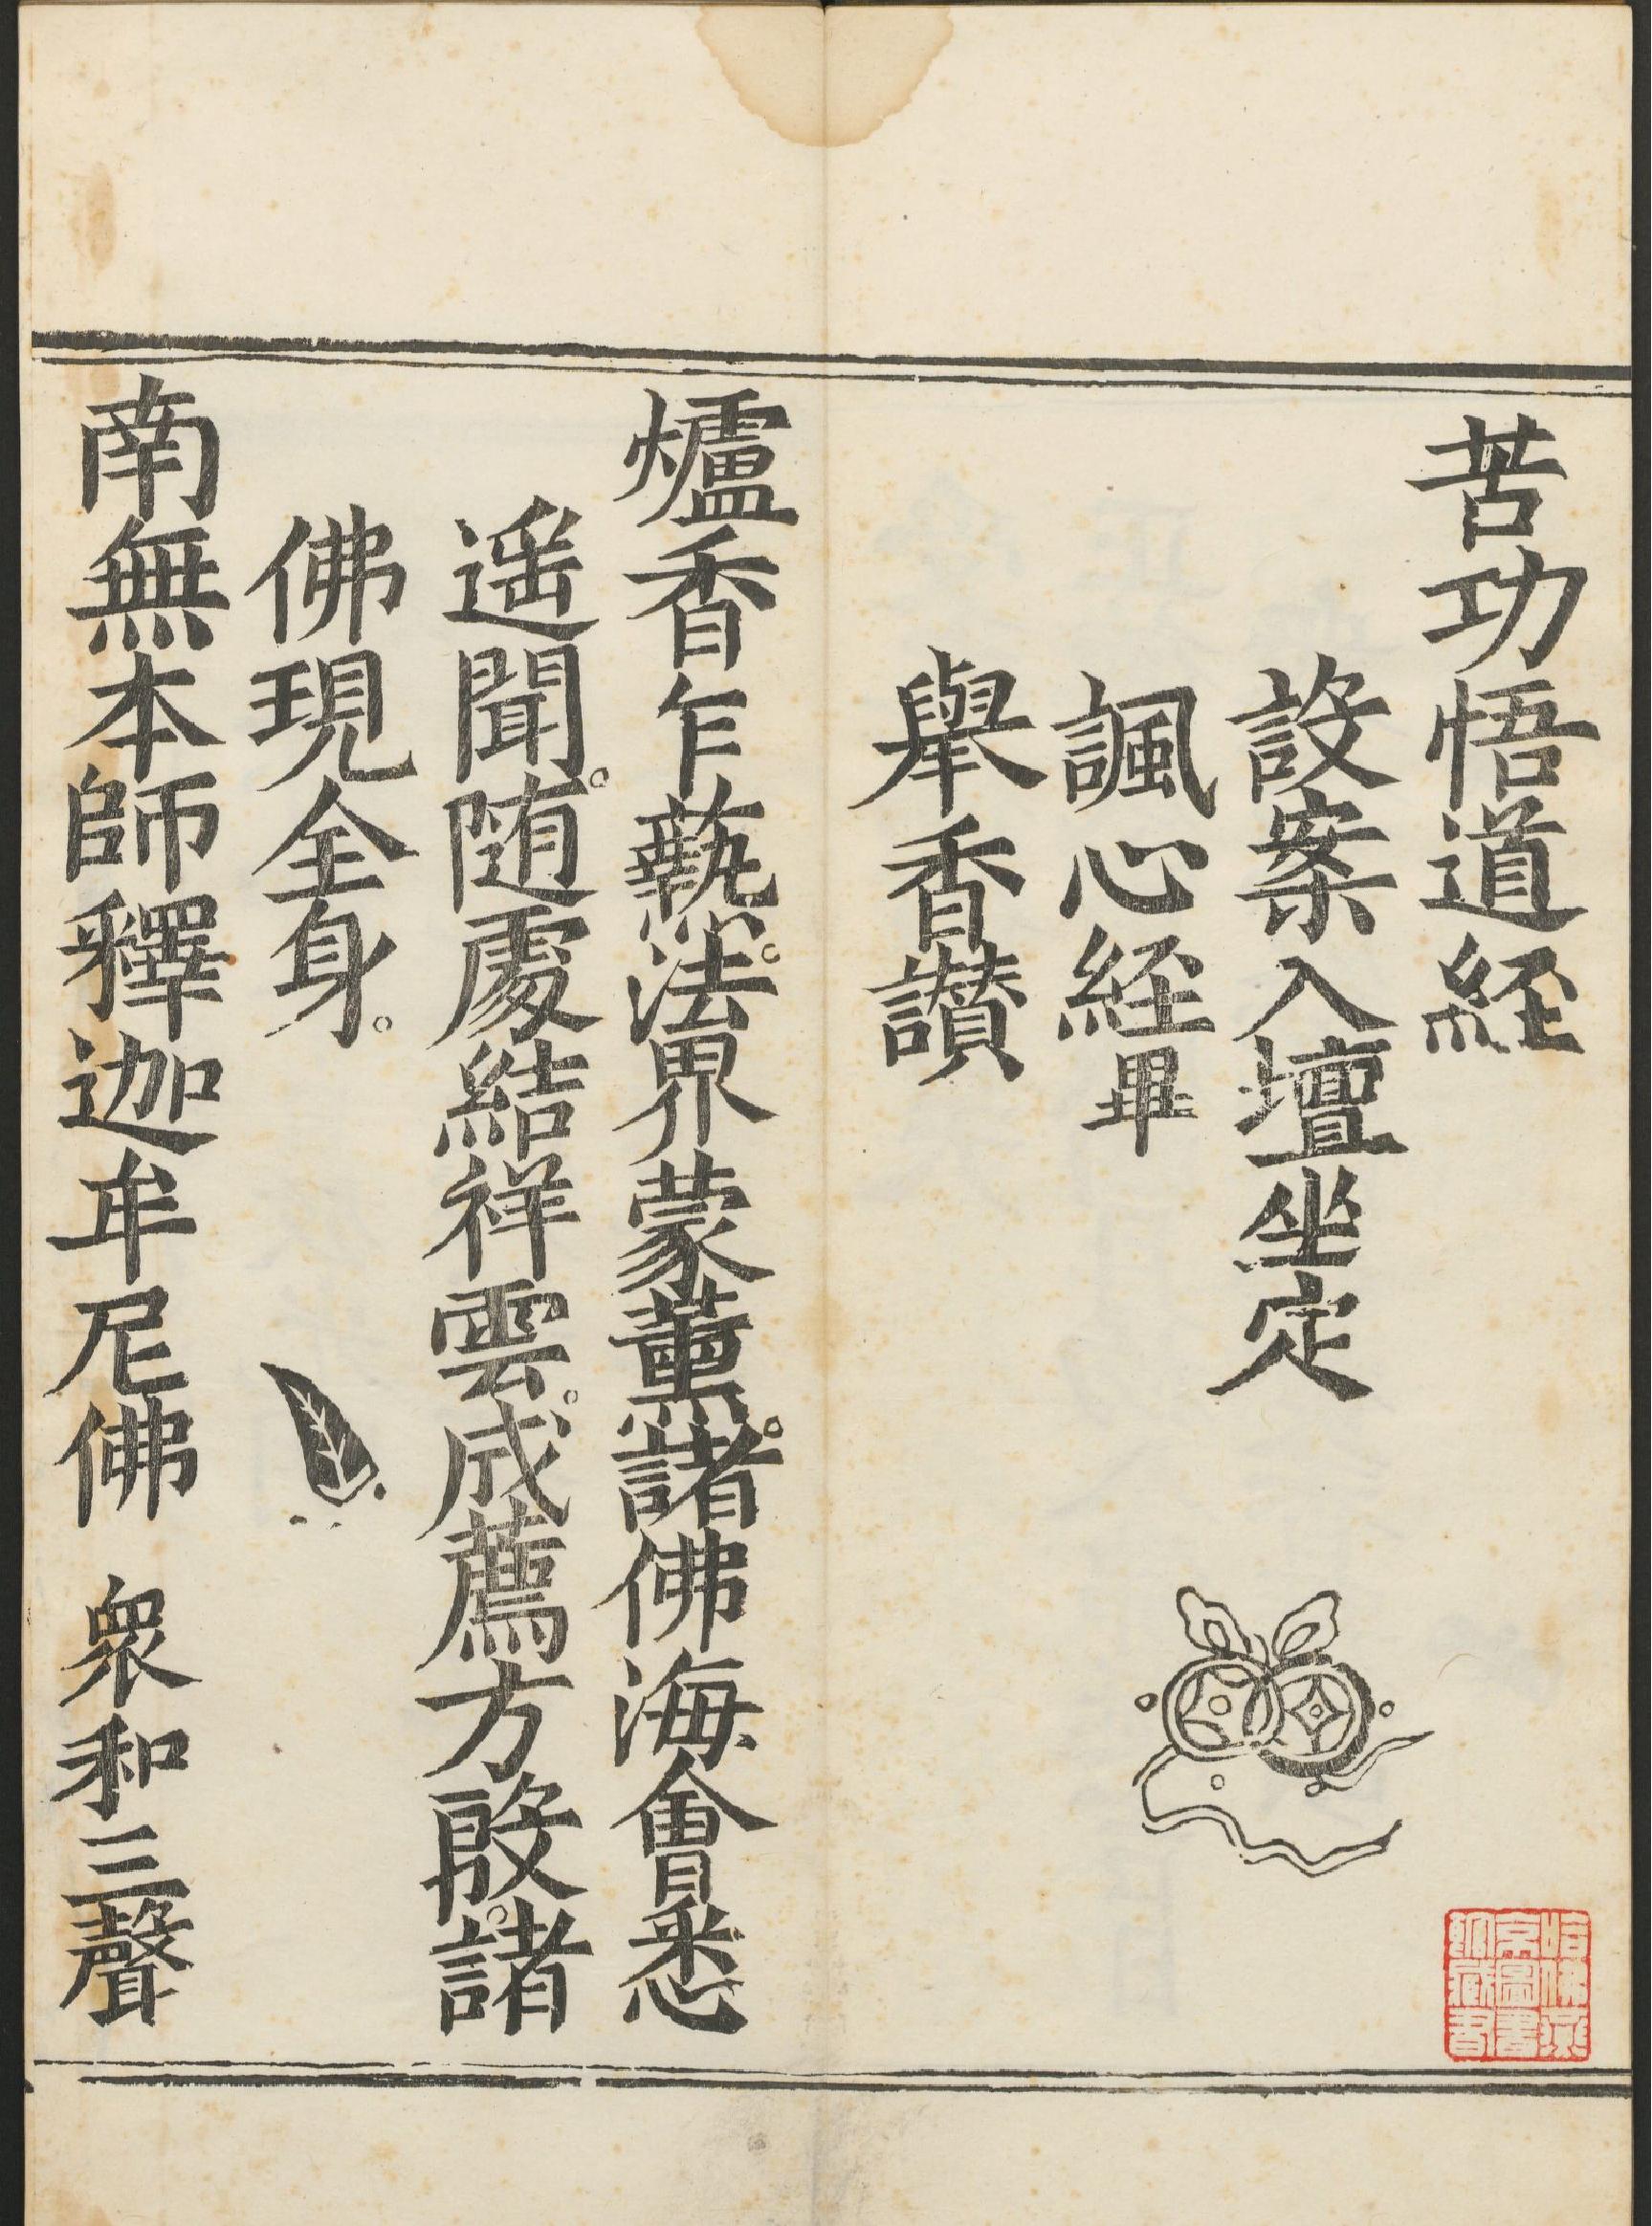 苦功悟道経
設案入壇坐定
諷心経畢
舉香讃
爐香乍爇。法界蒙薰。諸佛海會悉
遥聞。随處結祥雲。成薦方殷。諸
佛現全身。
南無本師釋迦牟尼佛　衆和三聲
哈佛燕
京圖書
館藏書